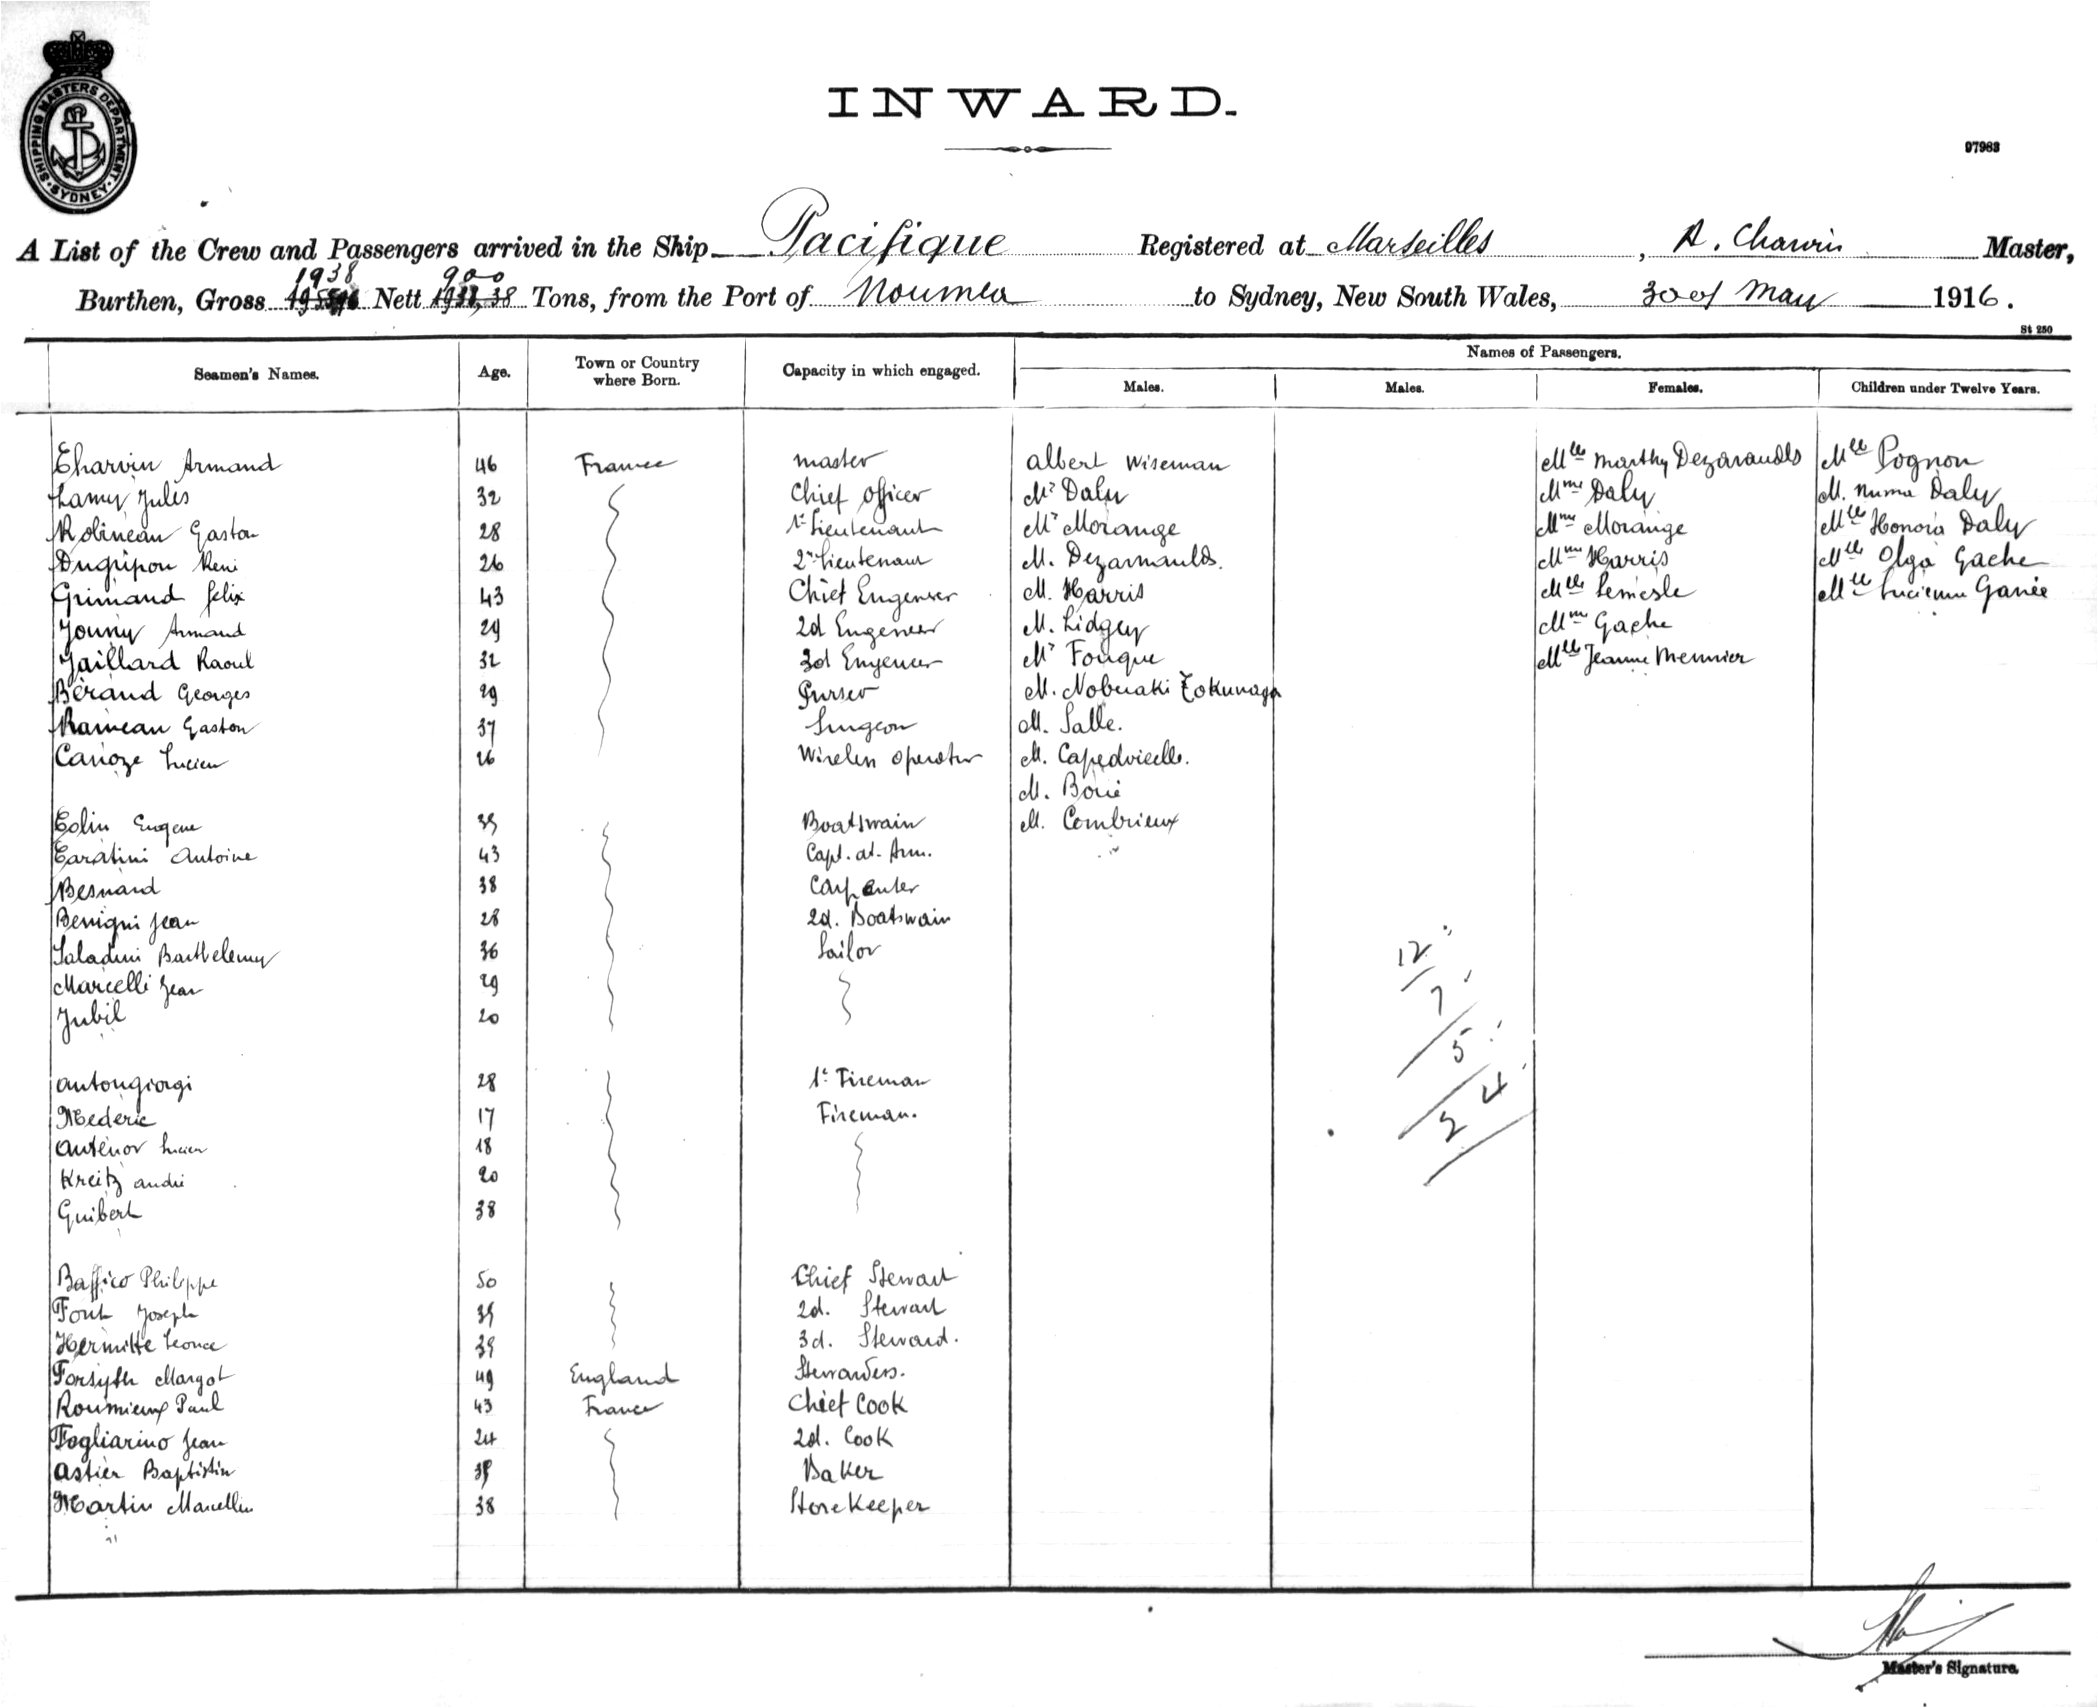 SHIPPING MASTERS DEPARTMENT · SYDNEY ·
INWARD.
97983
A List of the Crew and Passengers arrived in the Ship Pacifique Registered at Marseilles, A. Charvin Master,
1938 900
Burthen, Gross Nett Tons, from the Port of Noumea to Sydney, New South Wales, 30 of May 1916.
St 250
Seamen's Names. Age. Town or Country where Born. Capacity in which engaged. Names of Passengers.
Males. Males. Females. Children under Twelve Years.
Charvin Armand 46 France master Albert Wiseman Mlle Marthy Dezarnaulds Mlle Pognon
Lamy Jules 32 Chief Officer Mr Daly Mme Daly M. Numa Daly
Robineau Gaston 28 1r Lieutenant Mr Morange Mme Morange Mlle Honora Daly
Dugripon René 26 2n Lieutenant M. Dezarnaulds. Mme Harris Mlle Olga Gache
Grimaud Felix 43 Chief Engeneer M. Harris Mlle Lemesle Mlle Lucienne
Jouny Armand 29 2d Engeneer M. Lidgey Mme Gache
Jaillard Raoul 32 3d Engeneer Mr Fouque Mlle Jeanne Meunier
Béraud Georges 29 Purser M. Nobuaki Tokunaga
Rameau Gaston 37 Surgeon M. Salle.
Carioze Lucien 26 Wireless Operator M. Capedvielle.
M. Borie
Colin Eugene 39 Boatswain M. Combrieux
Caratini Antoine 43 Capt. at. Arm.
Besnard 38 Carpenter
Benigni Jean 28 2d. Boatswain
Saladini Barthelemy 36 Sailor
Marcelli Jean 29
Jubil 20
12
7
5
24
2
Antongiorgi 28 1r Fireman
Mederic 17 Fireman.
Antenor Lucien 18
Kreitz André 20
Guibert 38
Baffico Philippe 50 Chief Stewart
Font Joseph 39 2d. Stewart
Hermitte Leonce 39 3d. Steward.
Forsyth Margot 49 England Stewardess.
Roumieux Paul 43 France Chief Cook
Fogliarino Jean 24 2d. Cook
Astier Baptistin 39 Baker
Martin Marcellin 38 Storekeeper
Master's Signature.